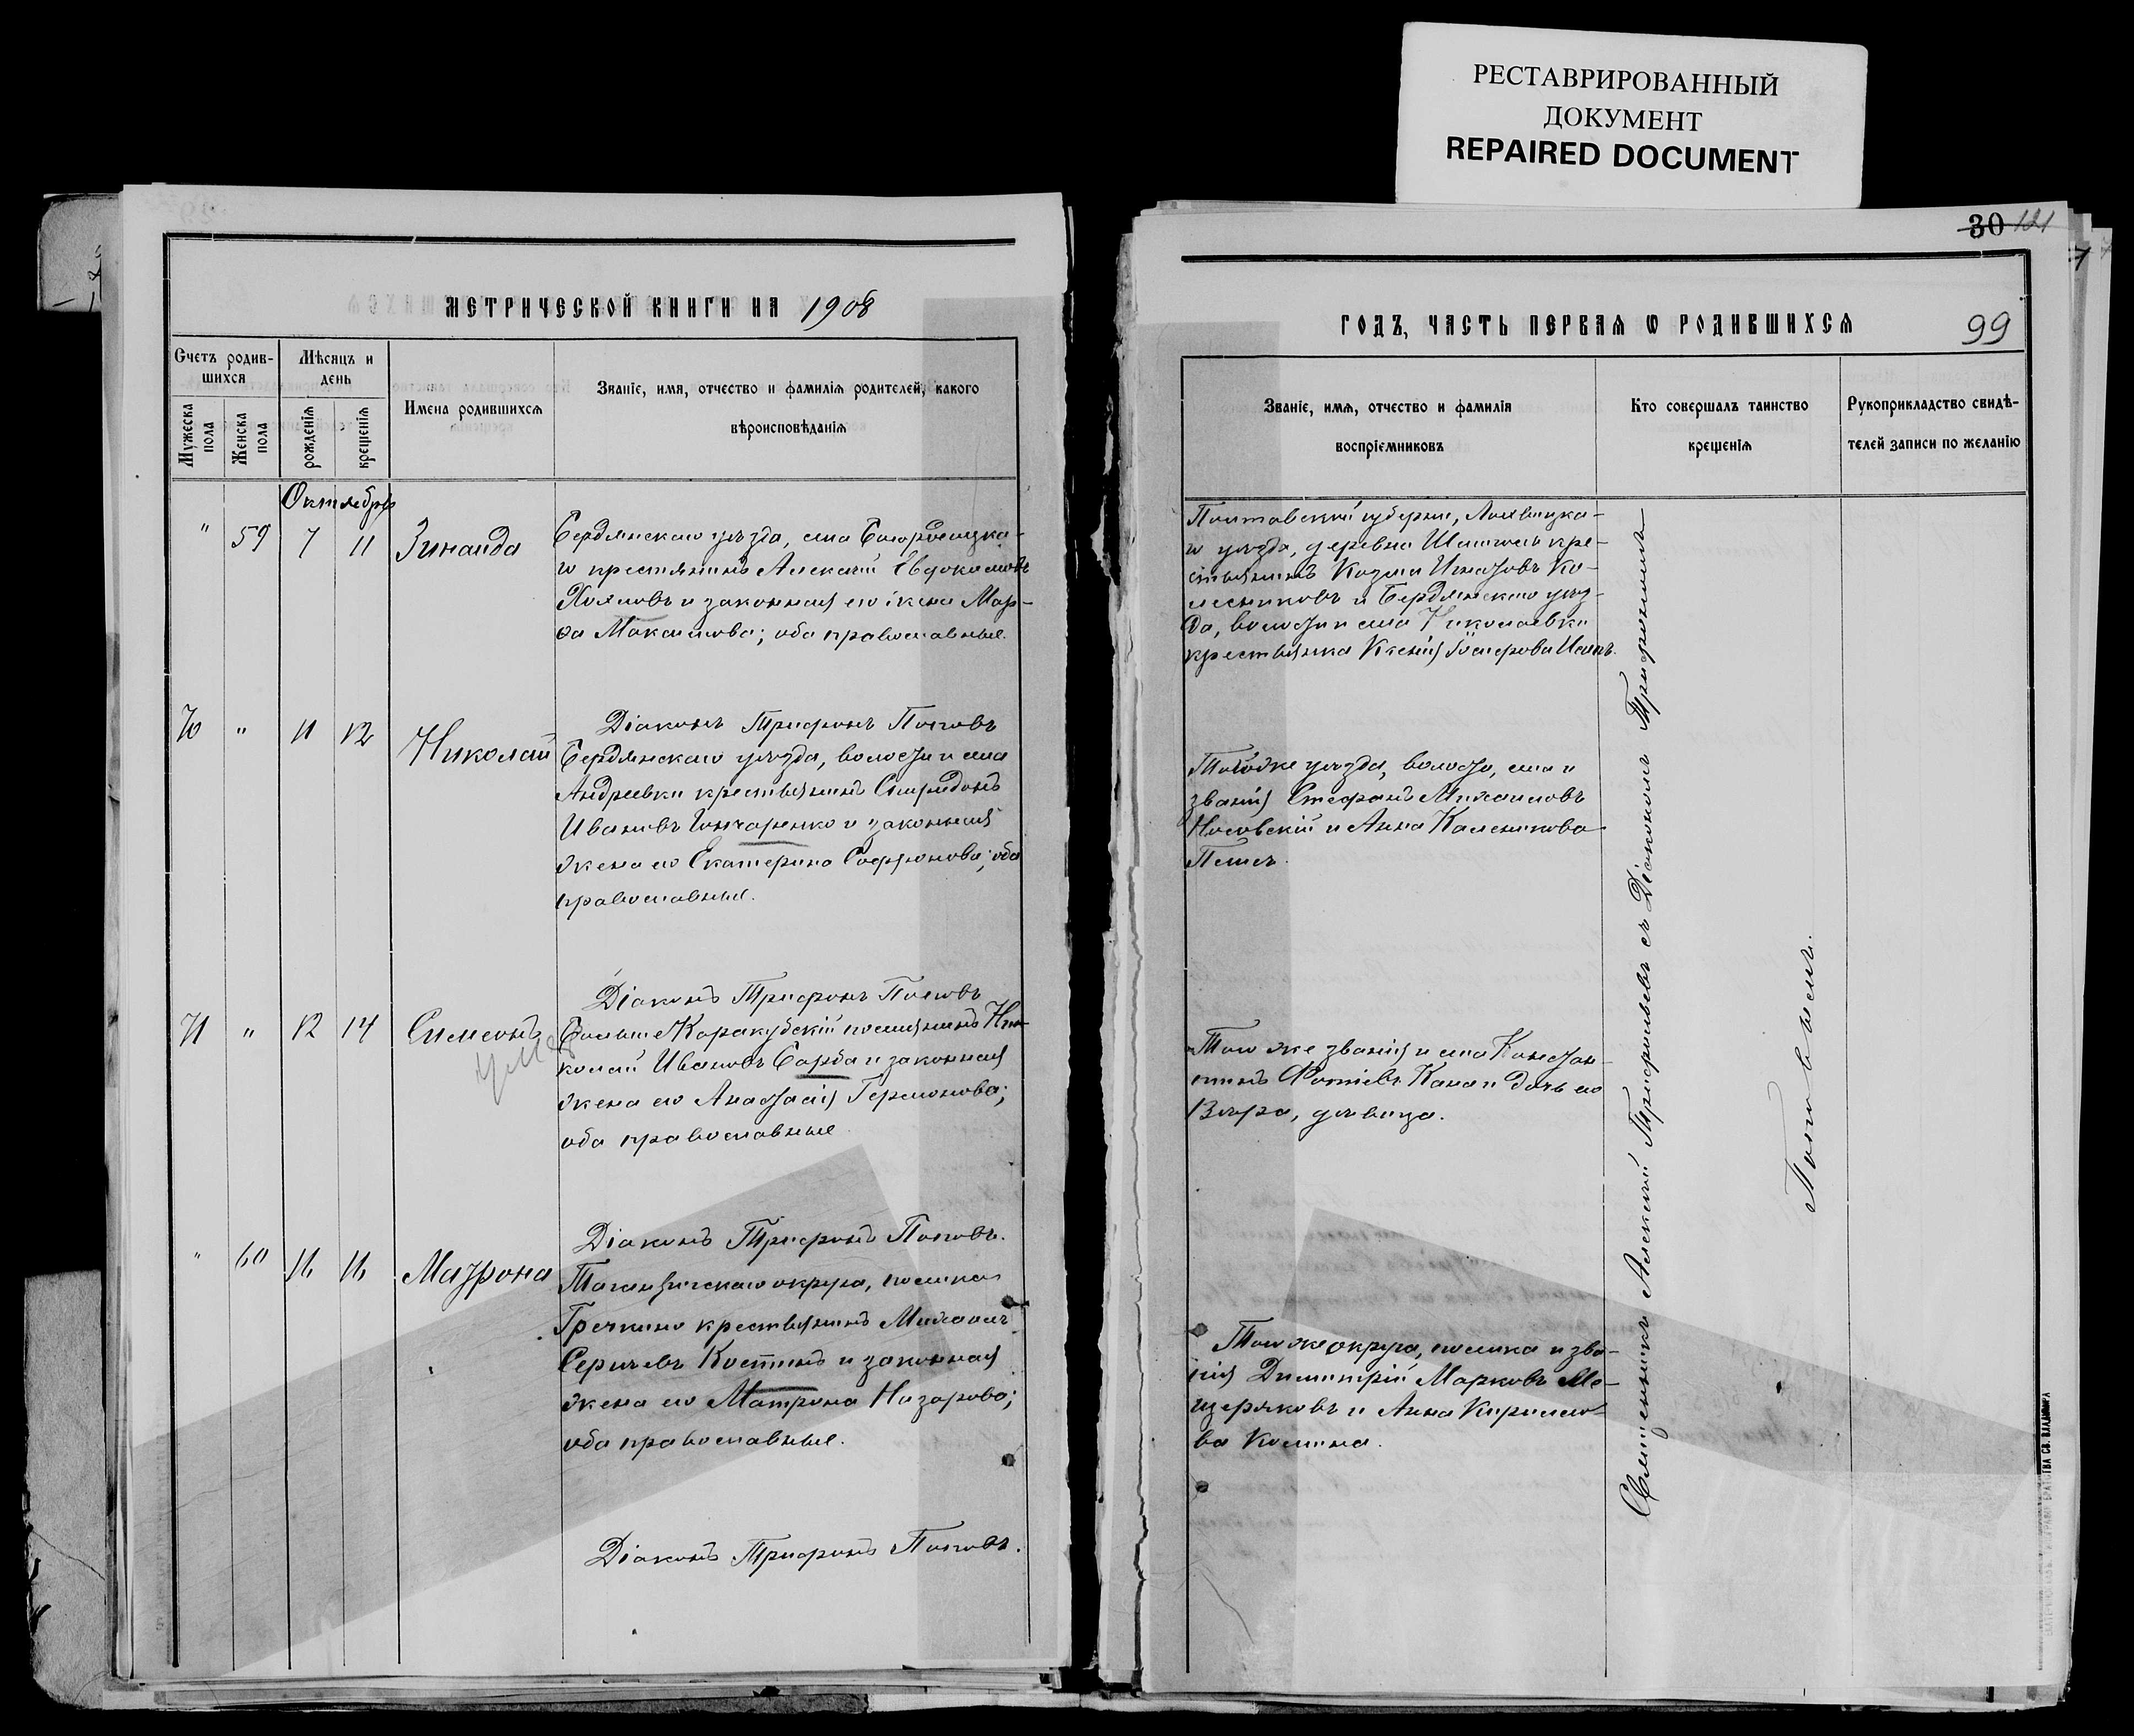 РЕСТАВРИРОВАННЫЙ
ДОКУМЕНТ
REPAIRED DOCUMENT
МЕТРИЧЕСКОЙ КНИГИ НА 1908
Счетъ родив-
шихся
Мужеска пола
Женска пола
Мѣсяцъ и
день
рожденія
крещенія
Имена родившихся
Званіе, имя, отчество и фамилія родителей, какого
вѣроисповѣданія
Октябрь
" 59 7 11 Зинаида
Бердянскаго уѣзда, села Богородицка-
го крестьянинъ Алексѣй Евдокимовъ
Хохловъ и законная его жена Мар-
ѳа Максимова; оба православные.
70 " 11 12 Николай
Діаконъ Трифонъ Поповъ
Бердянскаго уѣзда, волости и села
Андреевки крестьянинъ Спиридонъ
Ивановъ Гончаренко и законная
жена его Екатерина Софронова; оба
православные.
71 " 12 14 Симеонъ
умер
Діаконъ Трифонъ Поповъ
Больше Каракубскій поселянинъ Ни-
колай Ивановъ Сарба и законная
жена его Анастасія Гермонова;
оба православные
" 60 16 16 Матрона
Діаконъ Трифонъ Поповъ.
Таганрогскаго округа, поселка
Гречкино крестьянинъ Михаилъ
Сергѣевъ Костинъ и законная
жена его Матрона Назарова;
оба православные.
Діаконъ Трифонъ Поповъ.
30 121
ГОДЪ, ЧАСТЬ ПЕРВАЯ Ѡ РОДИВШИХСЯ
99
Званіе, имя, отчество и фамилія
воспріемниковъ
Кто совершалъ таинство
крещенія
Рукоприкладство свидѣ-
телей записи по желанію
Полтавской губерніи, Лохвицка-
го уѣзда, деревни кре-
стьянинъ Козма Игнатовъ Ко-
лесниковъ и Бердянскаго уѣз-
да, волости и села Николаевки
крестьянка Ксенія
Тогоже уѣзда, волости, села и
званія Стефанъ Михаиловъ
Носовскій и Анна Каленикова
Того же званія и села Констан-
тинъ Фотіевъ Кана и дочь его
Вѣра, дѣвица.
Того же округа, поселка и зва-
нія Димитрій Марковъ Ме-
щеряковъ и Анна Кирилло-
ва Костина.
Священникъ Алексій Трифильевъ съ Діакономъ Трифономъ
Поповымъ.